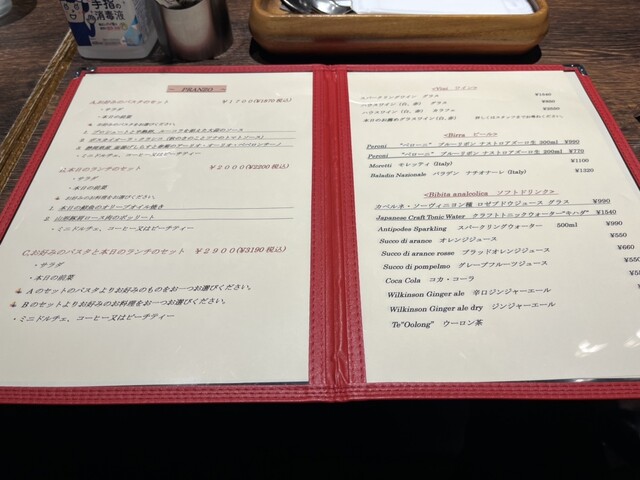 手指の
消毒液
～ PRANZO ～
A.お好みのパスタのセット ￥１７００(¥1870 税込)
・サラダ
・本日の前菜
お好みのパスタを一つお選びください。
・ミニドルチェ、コーヒー又はピーチティー
B.本日のランチのセット ￥２０００(¥2200 税込)
・サラダ
・本日の前菜
お好みのお料理をお選びください。
1. 本日の鮮魚のオリーブオイル焼き
2. 山形豚肩ロース肉のボッリート
・ミニドルチェ、コーヒー又はピーチティー
C.お好みのパスタと本日のランチのセット ￥２９００(¥3190 税込)
・サラダ
・本日の前菜
Aのセットのパスタよりお好みのものをお一つお選びください。
Bのセットよりお好みのお料理をお一つお選びください。
・ミニドルチェ、コーヒー又はピーチティー
<Vini ワイン>
スパークリングワイン グラス ¥1540
ハウスワイン（白、赤） グラス ¥880
ハウスワイン（白、赤） カラフェ
本日のお薦めグラスワイン（白、赤）
<Birra ビール>
Peroni “ペローニ” ブルーリボン ナストロアズーロ生 300ml ¥990
Peroni “ペローニ” ブルーリボン ナストロアズーロ生 200ml ¥770
Moretti モレッティ (Italy) ¥1100
Baladin Nazionale バラデン ナチオナーレ (Italy) ¥1320
<Bibita analcolica ソフトドリンク>
カベルネ・ソーヴィニヨン種 ロゼブドウジュース グラス ¥990
Japanese Craft Tonic Water クラフトトニックウォーター“キハダ” ¥1540
Antipodes Sparkling スパークリングウォーター 500ml ¥990
Succo di arance オレンジジュース ¥550
Succo di arance rosse ブラッドオレンジジュース ¥660
Succo di pompelmo グレープフルーツジュース
Coca Cola コカ・コーラ
Wilkinson Ginger ale 辛口ジンジャーエール
Wilkinson Ginger ale dry ジンジャーエール
Te"Oolong" ウーロン茶